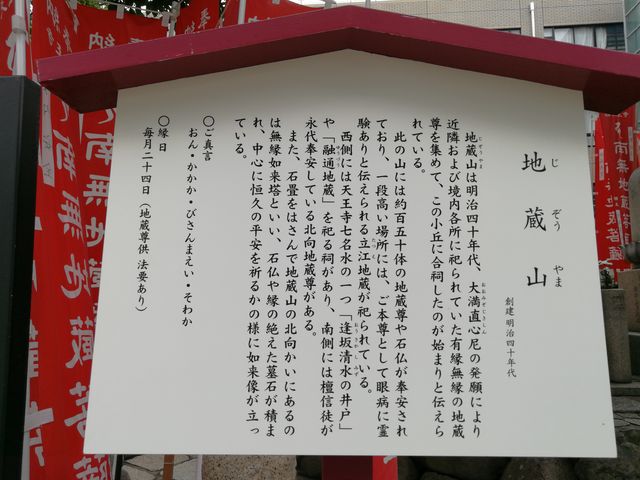 地蔵山
じぞうやま
創建 明治四十年代
地蔵山は明治四十年代、大満直心尼の発願により
近隣および境内各所に祀られていた有縁無縁の地蔵
尊を集めて、この小丘に合祠したのが始まりと伝えら
れている。
此の山には約百五十体の地蔵尊や石仏が奉安され
ており、一段高い場所には、ご本尊として眼病に霊
験ありと伝えられる立江地蔵が祀られている。
西側には天王寺七名水の一つ「逢坂清水の井戸」
や「融通地蔵」を祀る祠があり、南側には檀信徒が
永代奉安している北向地蔵尊がある。
また、石畳をはさんで地蔵山の北向かいにあるの
は無縁如来塔といい、石仏や縁の絶えた墓石が積ま
れ、中心に恒久の平安を祈るかの様に如来像が立っ
ている。
〇ご真言
おん・かかか・びさんまえい・そわか
〇縁日
毎月二十四日（地蔵尊供 法要あり）
南無地蔵菩薩
奉納